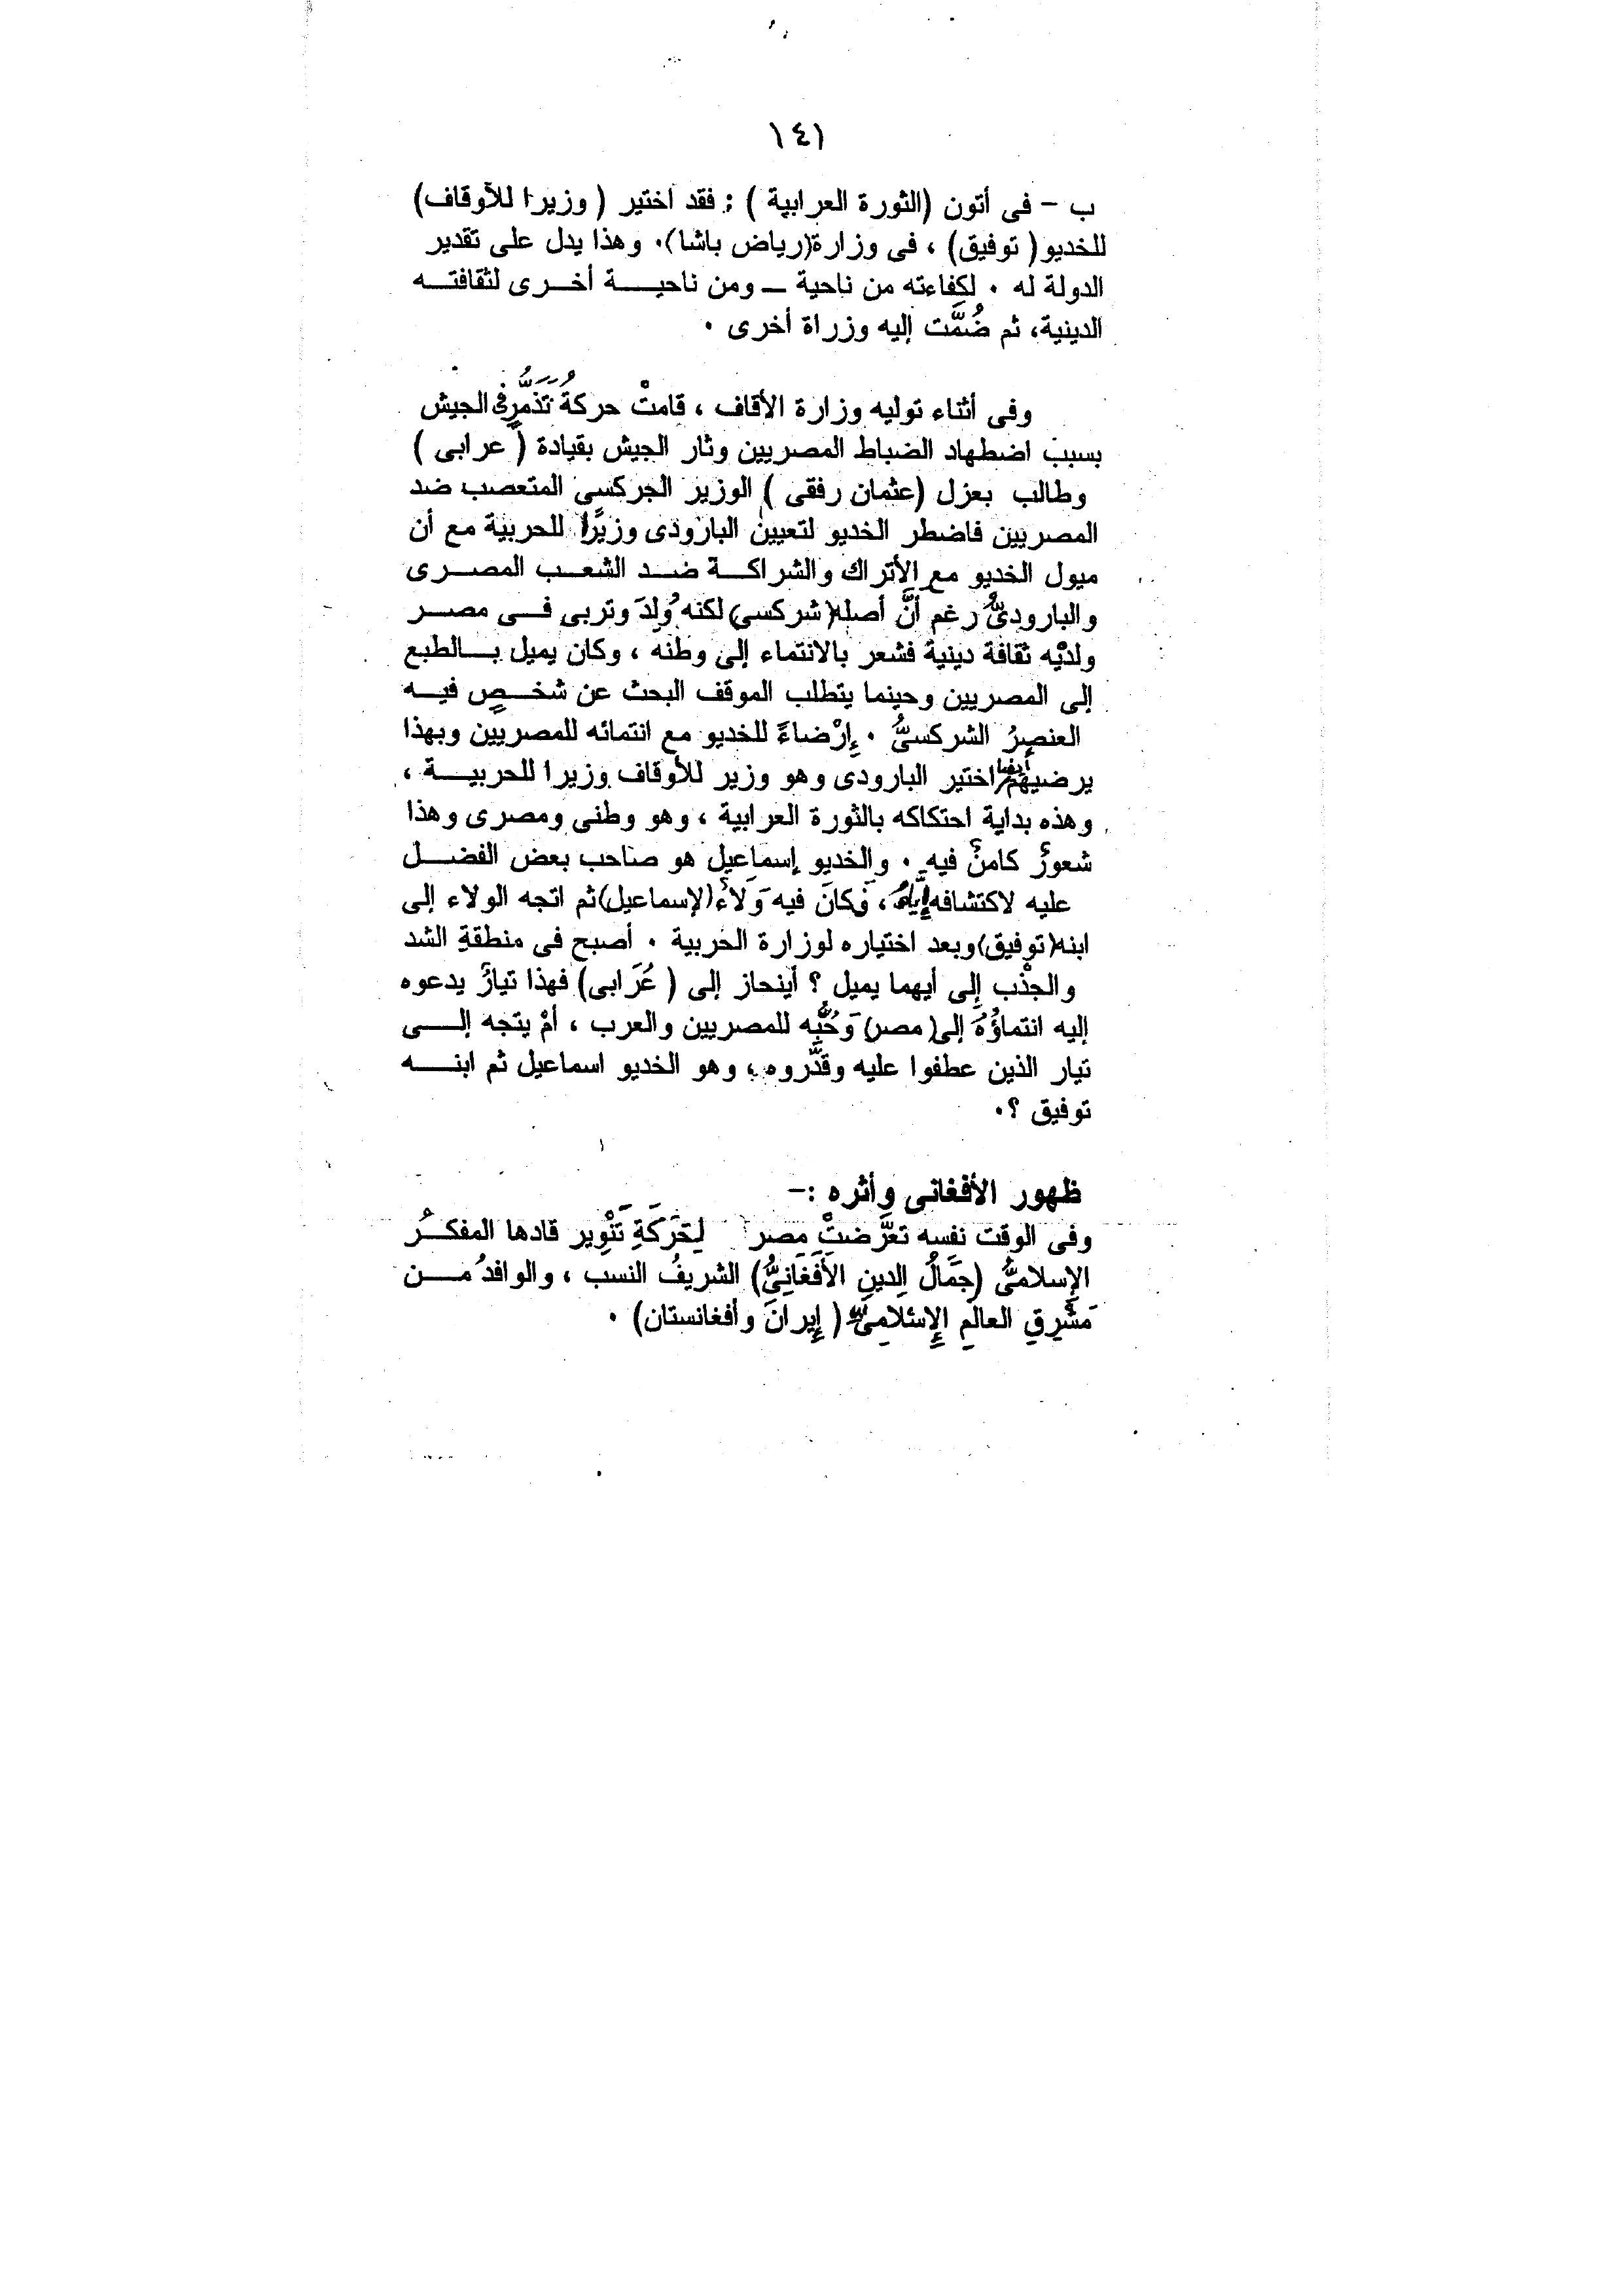 ١٤١
ب - فى أتون (الثورة العرابية ) : فقد اختير ( وزيرا للأوقاف)
للخديو( توفيق) ، فى وزارة(رياض باشا)٠ وهذا يدل على تقدير
الدولة له ٠ لكفاءته من ناحية ــ ومن ناحيــــة أخــرى لثقافتــه
الدينية، ثم ضُمَّت إليه وزراة أخرى ٠
وفى أثناء توليه وزارة الأقاف ، قامتْ حركةُ تَذَمُّرٍ فى الجيش
بسبب اضطهاد الضباط المصريين وثار الجيش بقيادة ( عرابى )
وطالب بعزل (عثمان رفقى ) الوزير الجركسى المتعصب ضد
المصريين فاضطر الخديو لتعيين البارودى وزيرًا للحربية مع أن
ميول الخديو مع الأتراك والشراكــة ضــد الشعــب المصــرى
والبارودىُّ رغم أنَّ أصله(شركسى)لكنه وُلِدَ وتربى فــى مصــر
ولديْه ثقافة دينية فشعر بالانتماء إلى وطنه ، وكان يميل بــالطبع
إلى المصريين وحينما يتطلب الموقف البحث عن شخــصٍ فيــه
العنصرُ الشركسىُّ ٠ إرْضاءً للخديو مع انتمائه للمصريين وبهذا
يرضيهم أيضا اختير البارودى وهو وزير للأوقاف وزيرا للحربيــة ،
وهذه بداية احتكاكه بالثورة العرابية ، وهو وطنى ومصرى وهذا
شعورٌ كامنٌ فيه ٠ والخديو إسماعيل هو صاحب بعض الفضــل
عليه لاكتشافه إيَّاهُ ، فكانَ فيه وَلاءٌ(لإسماعيل)ثم اتجه الولاء إلى
ابنه(توفيق)وبعد اختياره لوزارة الحربية ٠ أصبح فى منطقةِ الشد
والجذْب إلى أيهما يميل ؟ أينحاز إلى ( عُرَابى) فهذا تيارٌ يدعوه
إليه انتماؤُهُ إلى(مصر) وَحُبُّه للمصريين والعرب ، أمْ يتجه إلــى
تيار الذين عطفوا عليه وقدَّروه ، وهو الخديو اسماعيل ثم ابنــه
توفيق ؟٠
ظهور الأفغانى وأثره :-
وفى الوقت نفسه تعرَّضتْ مصر لِحَرَكَةِ تَنْوِير قادها المفكــرُ
الإسلامىُّ (جمَالُ الدينِ الأَفغَانِىُّ) الشريفُ النسب ، والوافدُ مــن
مَشْرِقِ العالَمِ الإِسْلامِىِّ ( إيرانَ وأفغانستان) ٠